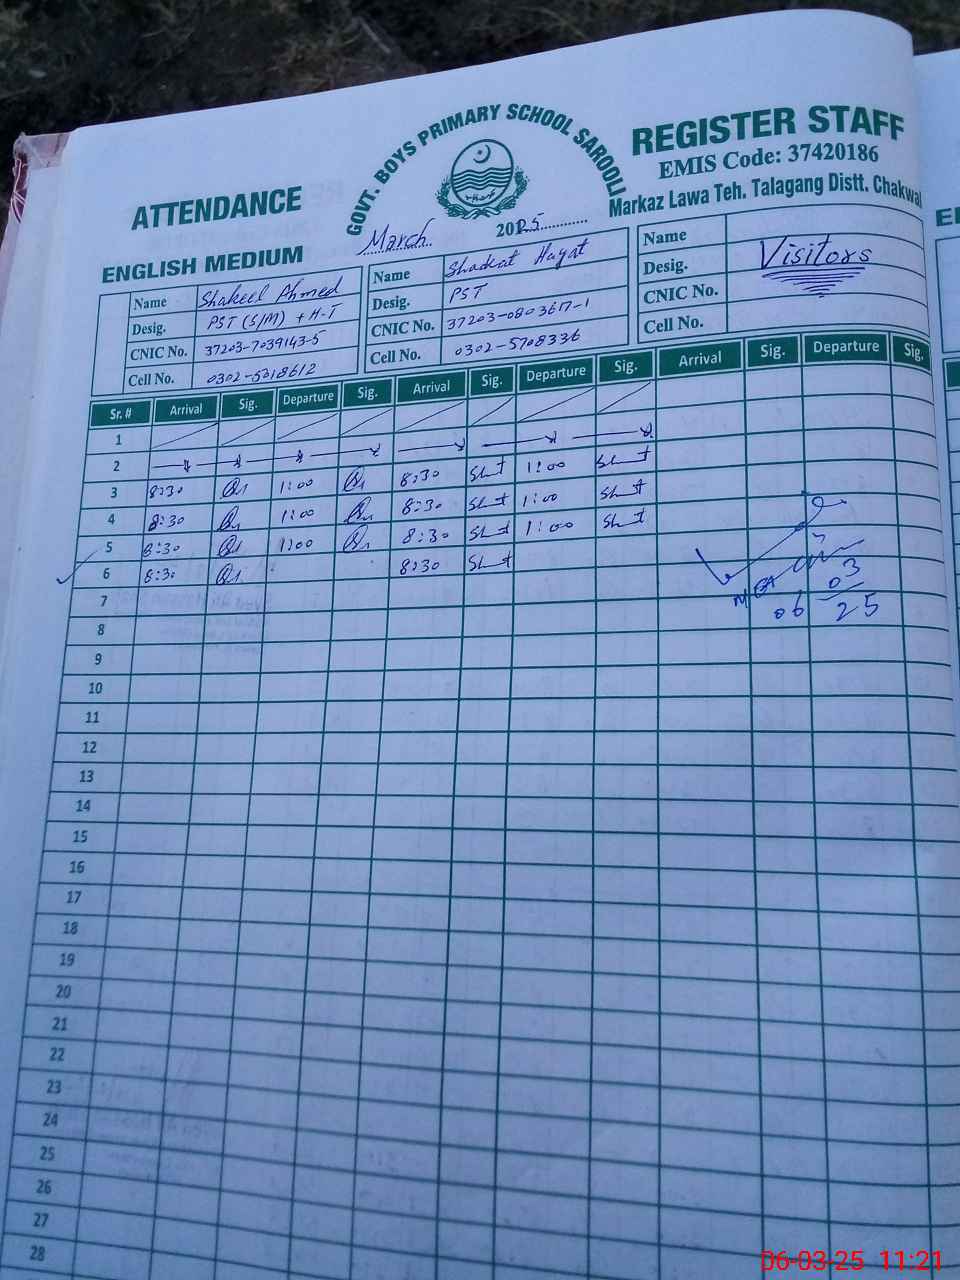 GOVT. BOYS PRIMARY SCHOOL SAROOLI
ATTENDANCE
REGISTER STAFF
EMIS Code: 37420186
Markaz Lawa Teh. Talagang Distt. Chakwal
ENGLISH MEDIUM
March 2025
Name Shakeel Ahmed
Desig. PST (S/M) + H-T
CNIC No. 37203-7039143-5
Cell No. 0302-5318612
Name Shaukat Hayat
Desig. PST
CNIC No. 37203-0803617-1
Cell No. 0302-5708336
Name Visitors
Desig.
CNIC No.
Cell No.
Sr. # Arrival Sig. Departure Sig. Arrival Sig. Departure Sig. Arrival Sig. Departure Sig.
1
2
3 8:30 1:00 8:30 1:00
4 8:30 1:00 8:30 1:00
5 8:30 1:00 8:30 1:00
6 8:30 8:30
MEA
06 03 25
7
8
9
10
11
12
13
14
15
16
17
18
19
20
21
22
23
24
25
26
27
28
06-03-25 11:21